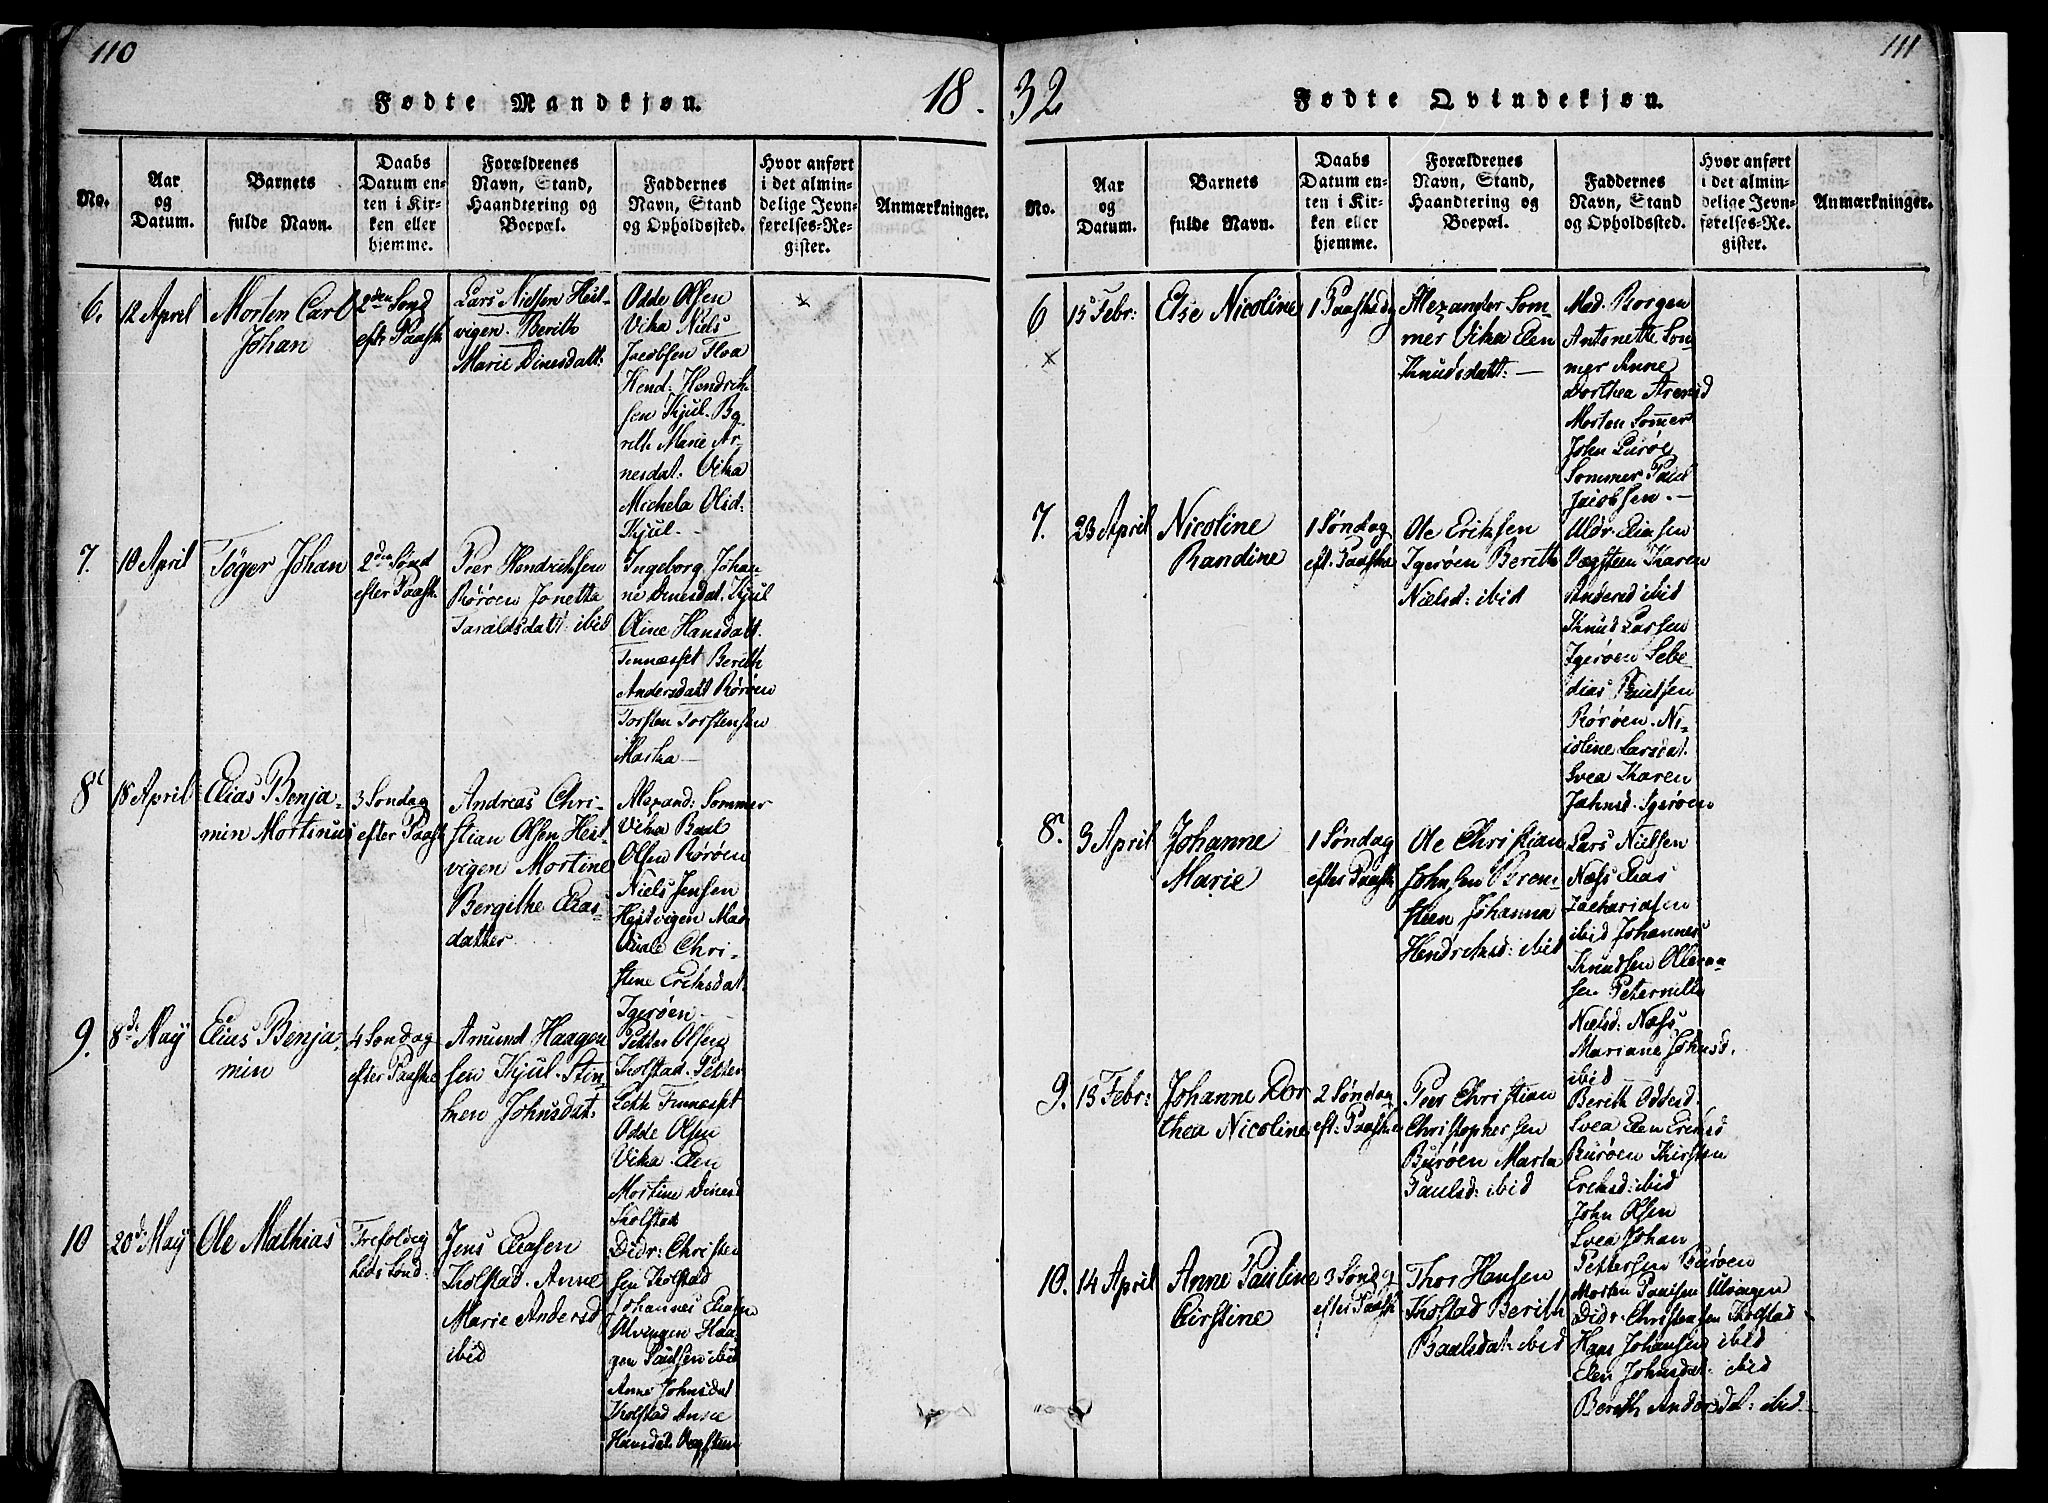 110
Fødte Mandkjøn.
18
No.
Aar
og
Datum.
Barnets
fulde Navn.
Daabs
Datum en-
ten i Kir-
ken eller
hjemme.
Forældrenes
Navn, Stand,
Haandtering og
Boepæl.
Faddernes
Navn, Stand
og Opholdssted.
Hvor anført
i det almin-
delige Jevn-
førelses-Re-
gister.
Anmærkninger.
6.
12 April
Morten Carl
Johan
2den Sønd
eft: Paaske
Lars Nielsen Hest-
vigen. Berith
Marie Dinesdatt:
Odde Olsen
Vika Niels
Jacobsen Floa
Hend: Hendrik-
sen Kjul. Be-
rith Marie Ar-
nesdat: Vika
Michela Olsd:
Kjul.
7.
10 April
Töger Johan
2den Sønd
efter Paask:
Peer Hendrichsen
Rörøen Jonetta
Taraldsdatt: ibid
Ingeborg Johan
ne Dinesdat: Kjul
Oline Hansdatt.
Tennæsset Berith
Andersdatt Rörøen
Torsten Torstensen
Marka
8
18 April
Elias Benja-
min Mortinus
3 Søndag
efter Paaske
Andreas Chri-
stian Olsen Hest-
vigen Mortine
Bergithe Elias-
datter
Alexand: Sommer
Vika Baal
Olsen Rörøen
Niels Jensen
Hestvigen Mad
Chri-
stine Eriksdat:
Igerøen
9.
8de May
Elias Benja-
min
4 Søndag
efter Paaske
Amund Haagen
sen Kjul. Stin-
ken Johnsdat:
Petter Olsen
Kolstad. Petter
Leth Tennæsset
Odde Olsen
Vika. Elen
Mortine Dinesd
Kolstad
10
20de May
Ole Mathias
Trefoldig
heds Sønd:
Jens Eliasen
Kolstad. Anne
Marie Andersd
ibid
Didr: Christen
sen Kolstad
Johannes Eliasen
Ulvingen Haa-
gen Paulsen ibid
Anne Johnsdat
Kolstad Anne
Hansdat: Vægsteen
32
Fødte Qvindekjøn.
111
No.
Aar
og
Datum.
Barnets
fulde Navn.
Daabs
Datum en-
ten i Kir-
ken eller
hjemme.
Forældrenes
Navn, Stand,
Haandtering og
Boepæl.
Faddernes
Navn, Stand
og Opholdssted.
Hvor anført
i det almin-
delige Jevn-
førelses-Re-
gister.
Anmærkninger.
6
15 Febr:
Else Nicoline
1 Paaskedg
Alexander Som-
mer Vika Elen
Knudsdatt:
Mad. Borgen
Antonette Som-
mer Anne
Dorthea Arensd
Morten Sommer
John Lurøe
Sommer Paul
Jacobsen.
7.
23 April
Nicoline
Randine
1 Søndag
eft: Paaske
Ole Eriksen
Igerøen Berith
Nielsd: ibid
Uldr. Eliasen
Vægsteen Karen
Andersd ibid
Knud Larsen
Igerøen Sebe-
dias
Rörøen. Ni-
coline Larsdat.
Svea Karen
Johnsd. Igerøen
8.
3 April
Johanne
Marie
1 Søndag
efter Paaske
Ole Christian
Johnsen Brem-
steen Johanna
Hendriksd: ibid
Lars Nielsen
Næss Elias
Zachariasen
ibid Johannes
Knudsen Ollerva-
sen Peternille
Nielsd: Næss
Mariane Johnsd.
ibid
9.
13 Febr:
Johanne Dor
thea Nicoline
2 Søndag
eft: Paaske
Peer Christian
Christophersen
Burøen Marta
Paulsd: ibid
Berith Oddesd.
Svea Elen Eriksd
Burøen Kirsten
Eriksd: ibid
John Olsen
Svea Johan
Pettersen Burøen
10.
14 April
Anne Pauline
Cirstine
3 Søndg
efter Paask
Thor Hansen
Kolstad Berith
Baalsdat: ibid
Morten Paulsen Ulvingen
Didr: Christensen Kolstad
Hans Johansen ibid
Elen Johnsdat: ibid
Berith Andersdat: ibid.